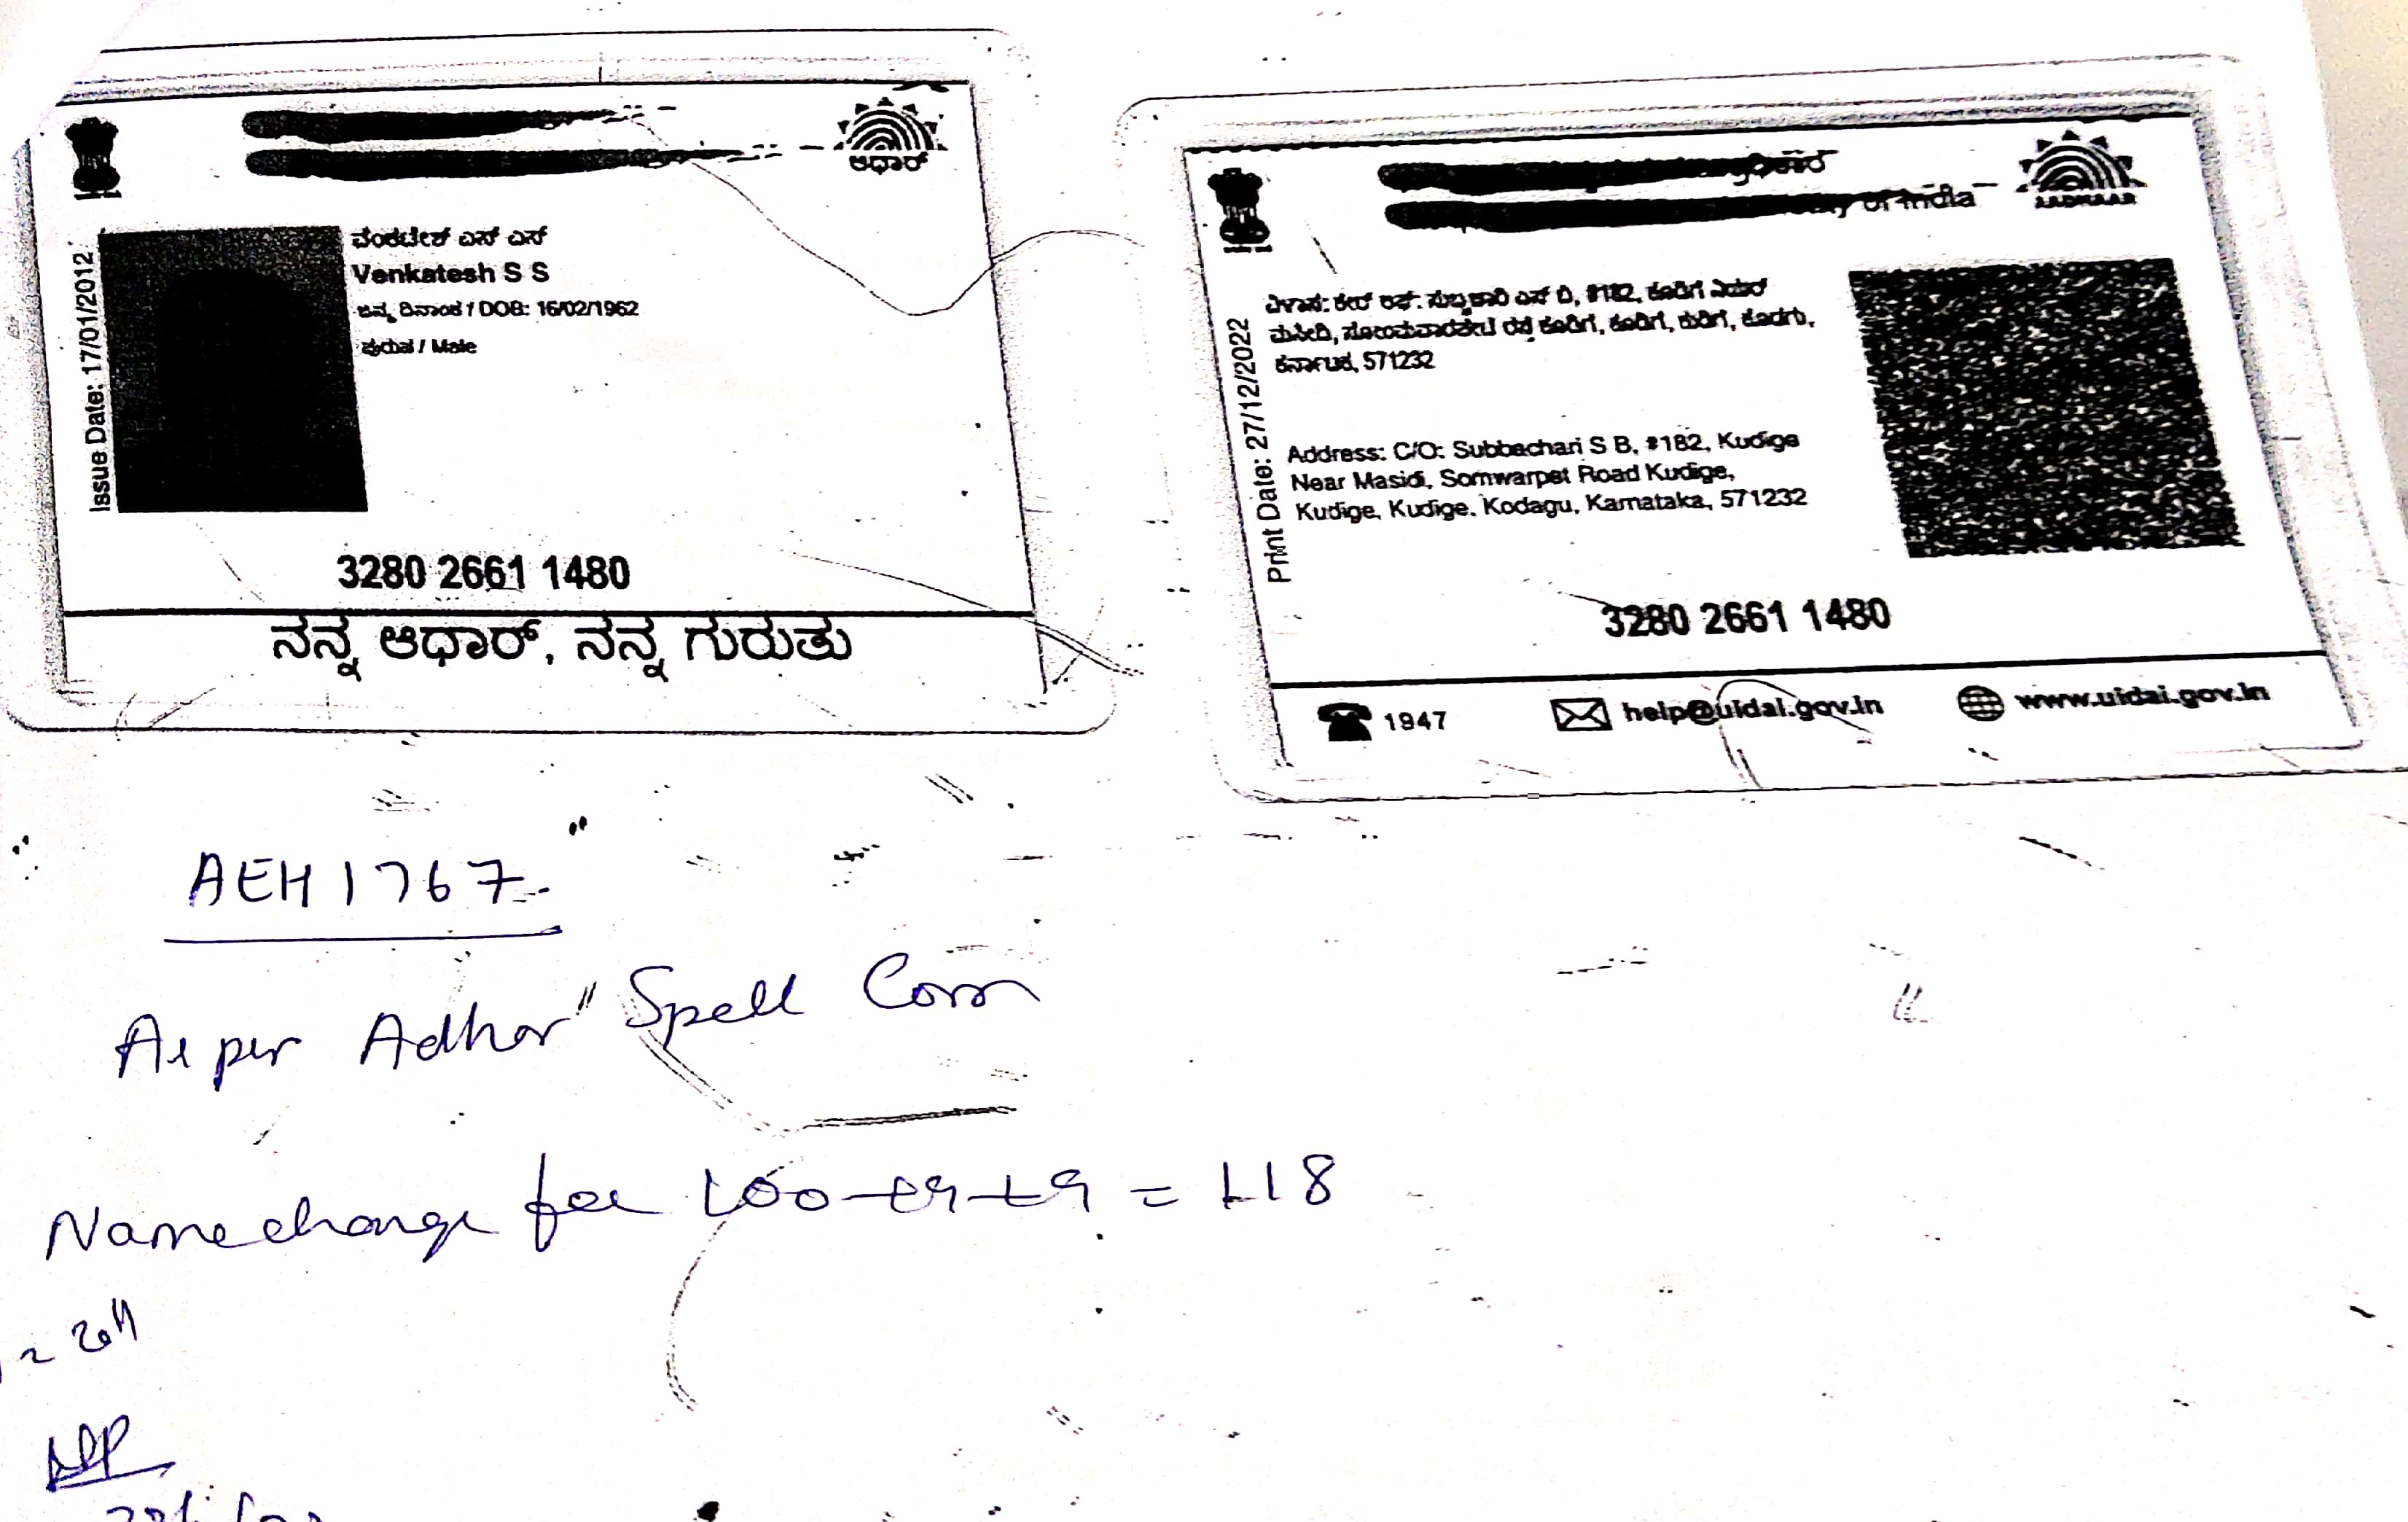 ಆಧಾರ್
Issue Date: 17/01/2012
ವೆಂಕಟೇಶ್ ಎಸ್ ಎಸ್
Venkatesh S S
ಜನ್ಮ ದಿನಾಂಕ / DOB: 16/02/1962
ಪುರುಷ / Male
3280 2661 1480
ನನ್ನ ಆಧಾರ್, ನನ್ನ ಗುರುತು
of India
AADHAAR
Print Date: 27/12/2022
ಕರ್ನಾಟಕ, 571232
Address: C/O: Subbachari S B, #182, Kudige
Near Masidi, Somwarpet Road Kudige,
Kudige, Kudige, Kodagu, Karnataka, 571232
3280 2661 1480
1947
help@uidai.gov.in
www.uidai.gov.in
AEH 1767
As per Adhar Spell Corr
Name change fee 100 = 118